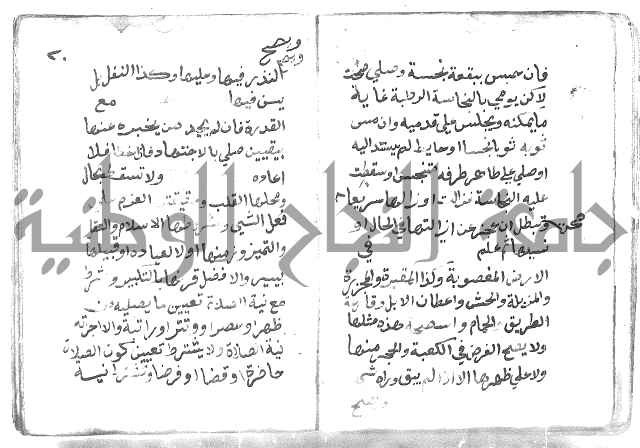 فان حبس ببقعة نجسة وصلى صحت
لاكن يومي بالنجاسة الرطبة غاية
ما يمكنه ويجلس على قدميه وان مس
ثوبه ثوبا نجسا او حايط لم يستند اليه
او صلى على طاهر طرفه متنجس او سقطت
عليه النجاسة فزالت او ازالها سريعا
صحت وتبطل ان عجز عن ازالتها في الحال او
نسيها ثم علم
في
الارض المغصوبة وكذا المقبرة والمجزرة
والمزبلة والحش واعطان الابل وقارعة
الطريق والحمام واسطحة هذه مثلها
ولا يصح الفرض في الكعبة والحجر منها
ولا على ظهرها الا اذا لم يبق وراه شي
ويصح
٢٠
ويصح
النذر فيها وعليها وكذا النفل بل
يسن فيها
مع
القدرة فان لم يجد من يخبره عنها
بيقين صلى بالاجتهاد فان اخطا فلا
اعاده
ولا تسقط بحال
ومحلها القلب وحقيقتها العزم على
فعل الشي وشرطها الاسلام والعقل
والتمييز وزمنها اول العباده او قبيلها
بيسير والافضل قرنها بالتكبير وشرط
مع نية الصلاة تعيين ما يصليه من
ظهر او عصر او وتر او راتبة والا اجزته
نية الصلاة ولا يشترط تعيين كون الصلاة
حاضرة او قضا او فرضا وتشترط نية
جامعة النجاح الوطنية